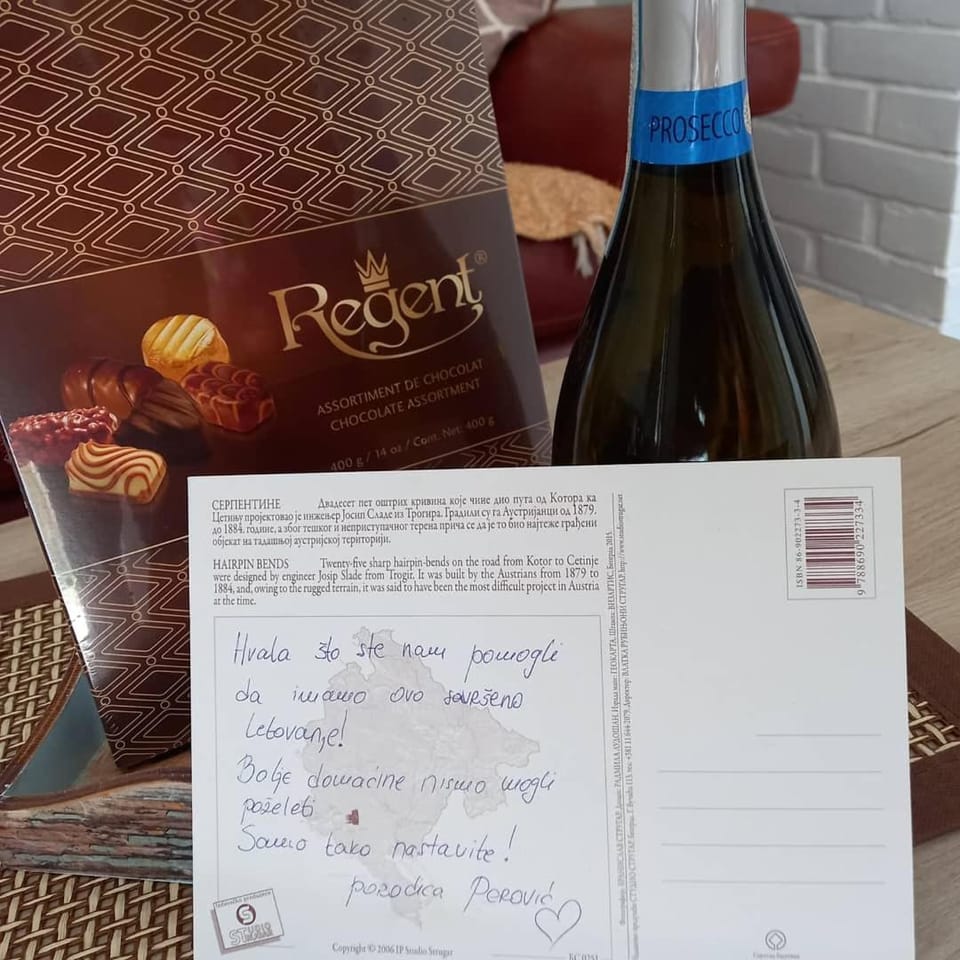 PROSECCO
Regent®
ASSORTIMENT DE CHOCOLAT
CHOCOLATE ASSORTMENT
400 g / 14 oz / Cont. Net: 400 g
СЕРПЕНТИНЕ Двадесет пет оштрих кривина које чине дио пута од Котора ка
Цетињу пројектовао је инжењер Јосип Сладе из Трогира. Градили су га Аустријанци од 1879.
до 1884. године, а због тешког и неприступачног терена прича се да је то био најтеже грађени
објекат на тадашњој аустријској територији.
HAIRPIN BENDS Twenty-five sharp hairpin-bends on the road from Kotor to Cetinje
were designed by engineer Josip Slade from Trogir. It was built by the Austrians from 1879 to
1884, and, owing to the rugged terrain, it was said to have been the most difficult project in Austria
at the time.
Hvala što ste nam pomogli
da imamo ovo savršeno
letovanje!
Bolje domaćine nismo mogli
poželeti
Samo tako nastavite!
porodica Perović
STUDIO
STRUGAR
Copyright © 2006 IP Studio Strugar
КС 0251
ISBN 86-902273-3-4
9 788690 227334